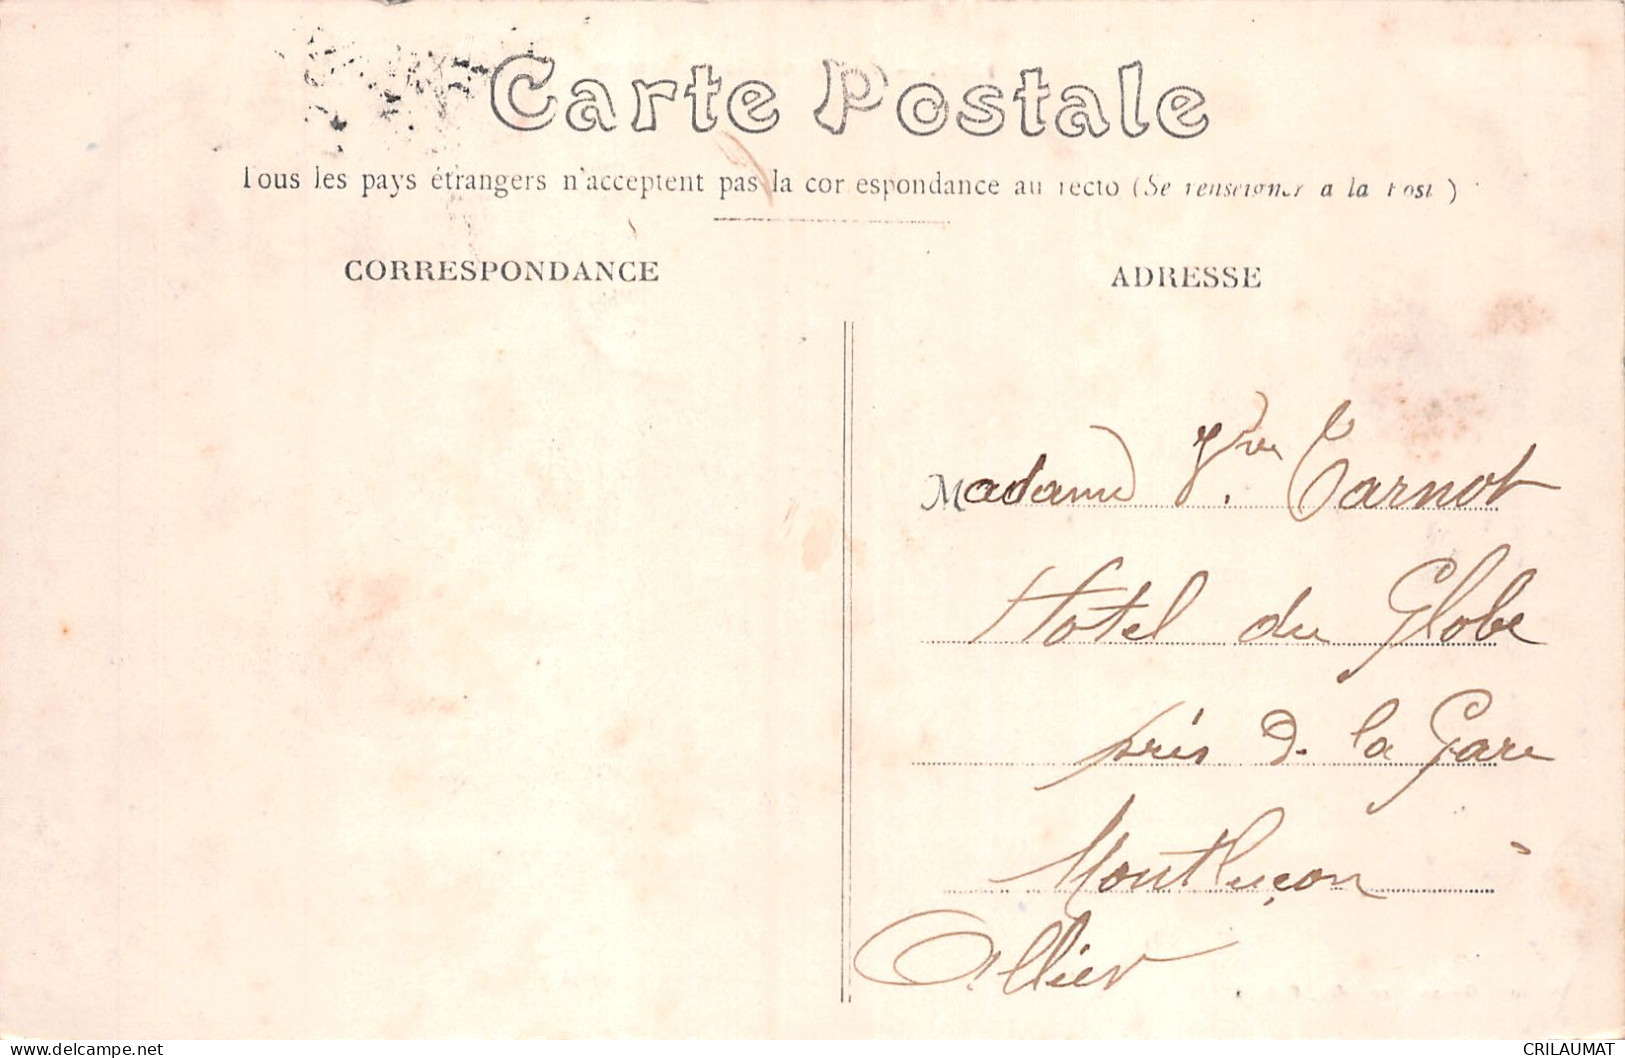 Carte Postale
Tous les pays étrangers n'acceptent pas la correspondance au recto (Se renseigner à la Poste)
CORRESPONDANCE
ADRESSE
Madame Vve Carnot
Hotel du Globe
près d. la Gare
Montluçon
Allier
www.delcampe.net
CRILAUMAT